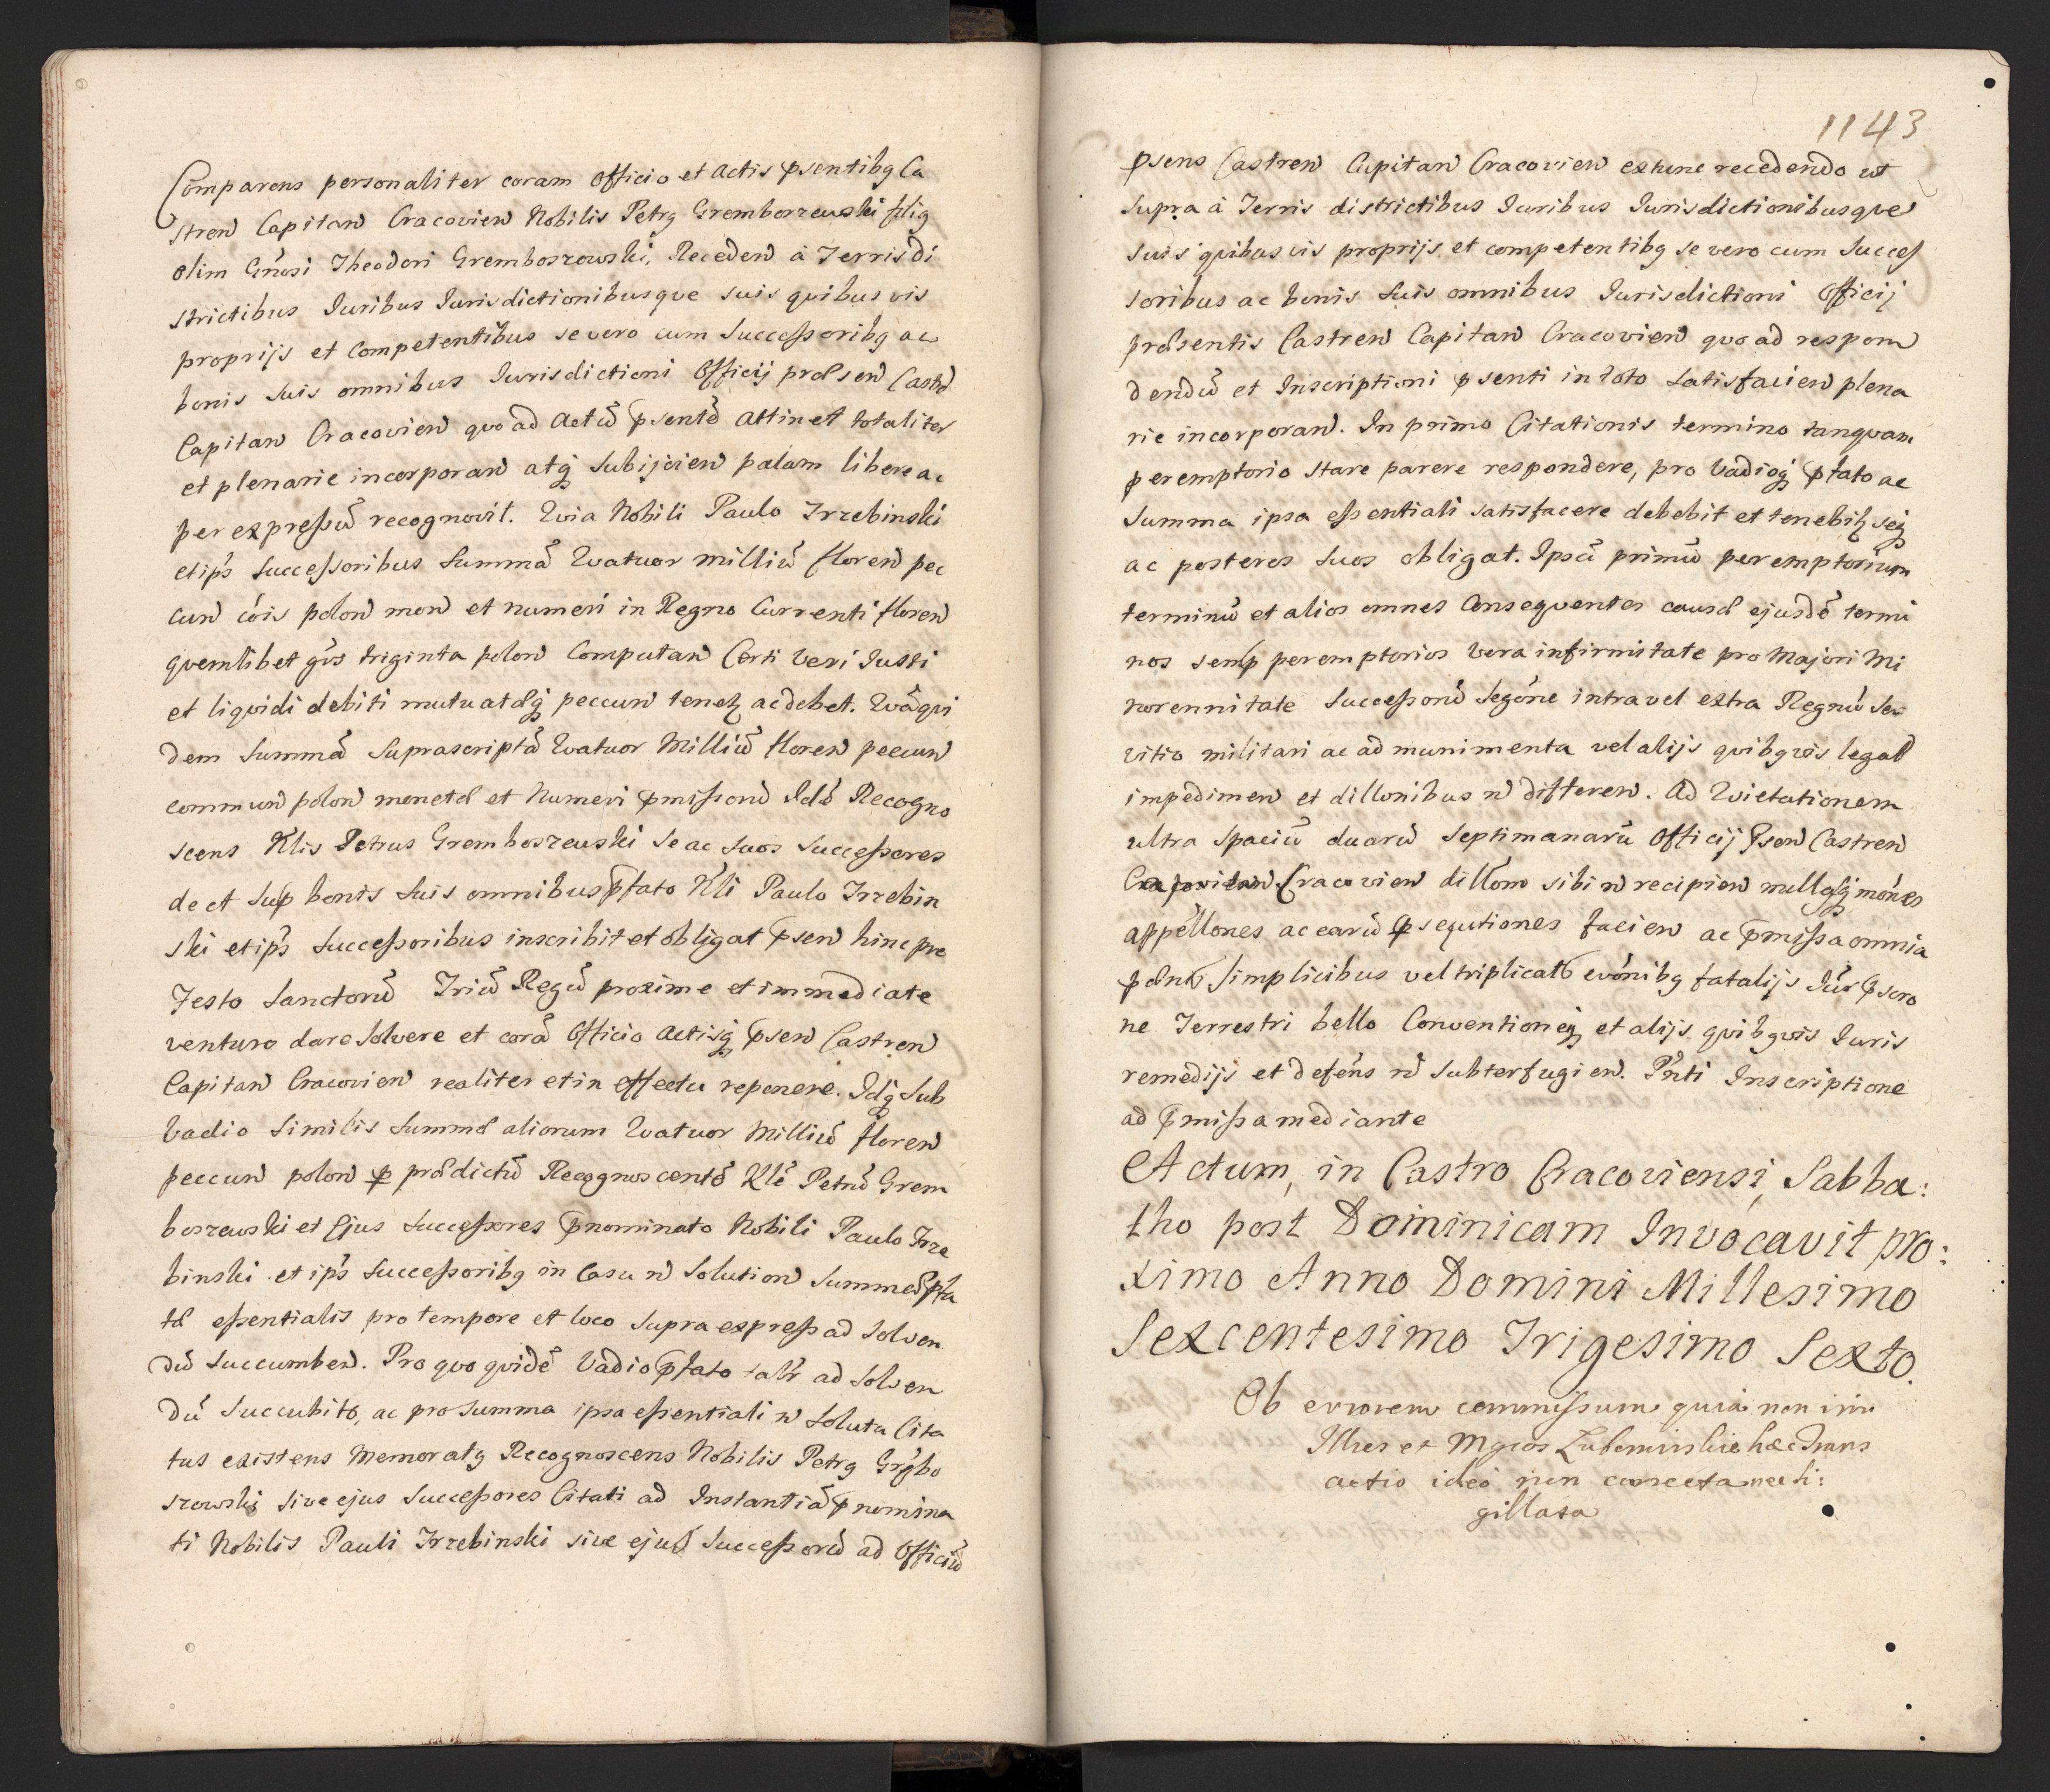 Comparens personaliter coram Officio et Actis ꝑsentibꝫ Ca
stren Capitan Cracovien Nobilis Petrꝫ Gremborzewski filiꝫ
olim Gnosi Theodori Gremboszowski, Receden à Terris di
strictibus Iuribus Iurisdictionibusque suis quibus vis
proprijs et Competentibus se vero cum Successoribꝫ ac
bonis suis omnibus Iurisdictioni Officij præsen Castrn
Capitan Cracovien quo ad Actū ꝑsentē attinet totaliter
et plenarie incorporan atqꝫ Subijcien palam libere ac
per expressū recognovit. Quia Nobili Paulo Trzebinski
et ips Successoribus Summā Quatuor milliū floren pec
cun cois polon mon et numeri in Regno Currenti floren
quemlibet grs triginta polon Computan Certi Veri Iusti
et liquidi debiti mutuatæqꝫ peccun tenetꝫ ac debet. Quā qui
dem Summā Suprascriptā Quatuor Milliū floren peccun
commun polon monetæ et Numeri ꝑmissorū Idē Recogno
scens Nlis Petrus Gremboszewski se ac suos Successores
de et Sup bonis suis omnibus ꝑfato Nli Paulo Trzebin
ski et ips Successoribus inscribit et obligat ꝑsen hinc pro
Festo Sanctorū Triū Regū proxime et immediate
venturo dare solvere et corā Officio Actisqꝫ ꝑsen Castren
Capitan Cracovien realiter et in effectu reponere. Idqꝫ Sub
Vadio similis Summæ aliorum Quatuor Milliū floren
peccun polon ꝑ prædictū Recognoscentē Nlē Petrū Grem
boszewski et Ejus Successores ꝑnominato Nobili Paulo Trze
binski et ips Successoribꝫ in Casu n Solution Summæ ꝑfa
tæ essentialis pro tempore et loco supra express ad solven
dū Succumben. Pro quo quidē Vadio ꝑfato talr ad solven
dū Succubito, ac pro Summa ipsa essentiali n Soluta Cita
tus existens Memoratꝫ Recognoscens Nobilis Petrꝫ Grębo
szowski sive ejus Successores Citati ad Instantiā ꝑnomina
ti Nobilis Pauli Trzebinski sive ejus Successorū ad Officiū
1143
ꝑsens Castren Capitan Cracovien extunc recedendo ut
Supra à Terris districtibus Iuribus Iurisdictionibusque
suis quibus vis proprijs et competentibꝫ se vero cum Succes
soribus ac bonis suis omnibus Iurisdictioni Officij
præsentis Castren Capitan Cracovien quo ad respon
dendū et Inscriptioni ꝑsenti in toto satisfacien plena
rie incorporan. In primo Citationis termino tanquam
peremptorio stare parere respondere, pro Vadioqꝫ ꝑfato ac
Summa ipsa essentiali satisfacere debebit et tenebitꝫ seqꝫ
ac posteros suos obligat. Ipsū primū peremptorium
terminū et alios omnes Consequentes causæ ejusdē termi
nos semꝑ peremptorios Vera infirmitate pro Majori Mi
norennitate Successorū Legōne intra vel extra Regnū Ser
vitio militari ac ad munimenta vel alijs quibꝫvis legal
impedimen et dillonibus n differen. Ad Quietationem
ultra spaciū duarū Septimanarū Officij ꝑsen Castren
Cracovien dillōm sibi n recipien nullasqꝫ mōnes
appellones ac earū ꝑsequtiones facien ac ꝑmissa omnia
simplicibus vel triplicatis evōnibꝫ fatalijs
ne Terrestri bello Conventioneqꝫ et alijs quibꝫvis Iuris
remedijs et defens n subterfugien. Pnti Inscriptione
ad ꝑmissa mediante
Actum, in Castro Cracoviensi, Sabba:
tho post Dominicam Invocavit pro:
ximo Anno Domini Millesimo
Sexcentesimo Trigesimo Sexto.
Ob errorem commissum quia non inter
Illres et Mgcos hæc Trans
actio ideo non correcta nec si:
gillata